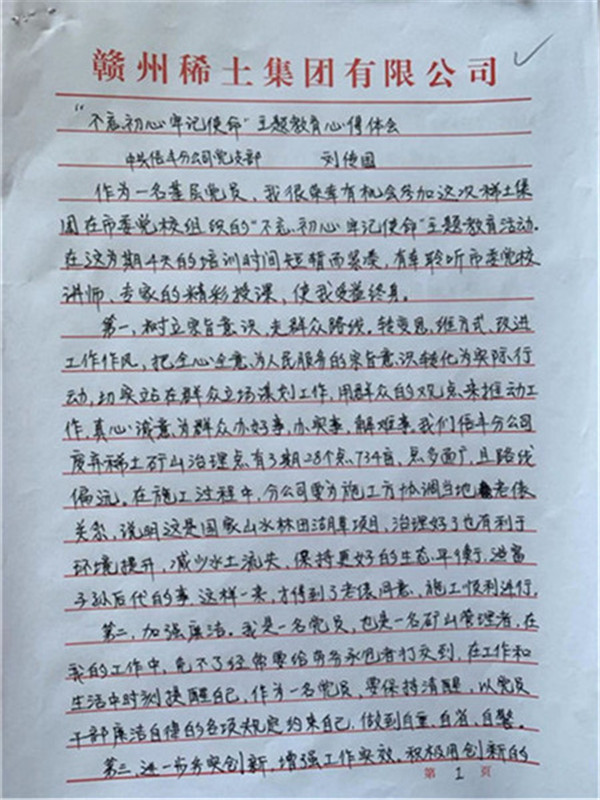 赣州稀土集团有限公司
“不忘初心牢记使命”主题教育心得体会
中共信丰分公司党支部 刘传国
作为一名基层党员，我很荣幸有机会参加这次稀土集
团在市委党校组织的“不忘初心牢记使命”主题教育活动.
在这为期4天的培训时间短暂而紧凑，有幸聆听市委党校
讲师、专家的精彩授课，使我受益终身。
第一，树立宗旨意识，走群众路线。转变思维方式，改进
工作作风，把全心全意为人民服务的宗旨意识转化为实际行
动，切实站在群众立场谋划工作，用群众的观点来推动工
作，真心诚意为群众办好事，办实事，解难事。我们信丰分公司
废弃稀土矿山治理点有3期28个点734亩，点多面广，且路线
偏远。在施工过程中，分公司要为施工方协调当地老俵
关系，说明这是国家山水林田湖草项目，治理好了也有利于
环境提升，减少水土流失，保持更好的生态平衡，造富
子孙后代的事，这样一来，才得到了老俵同意，施工顺利进行.
第二，加强廉洁。我是一名党员，也是一名矿山管理者，在
我的工作中，免不了经常要给劳务承包者打交到，在工作和
生活中时刻提醒自己，作为一名党员，要保持清醒，以党员
干部廉洁自律的各项规定约束自己，做到自重，自省，自警。
第三，进一步务实创新，增强工作实效。积极用创新的
第 1 页